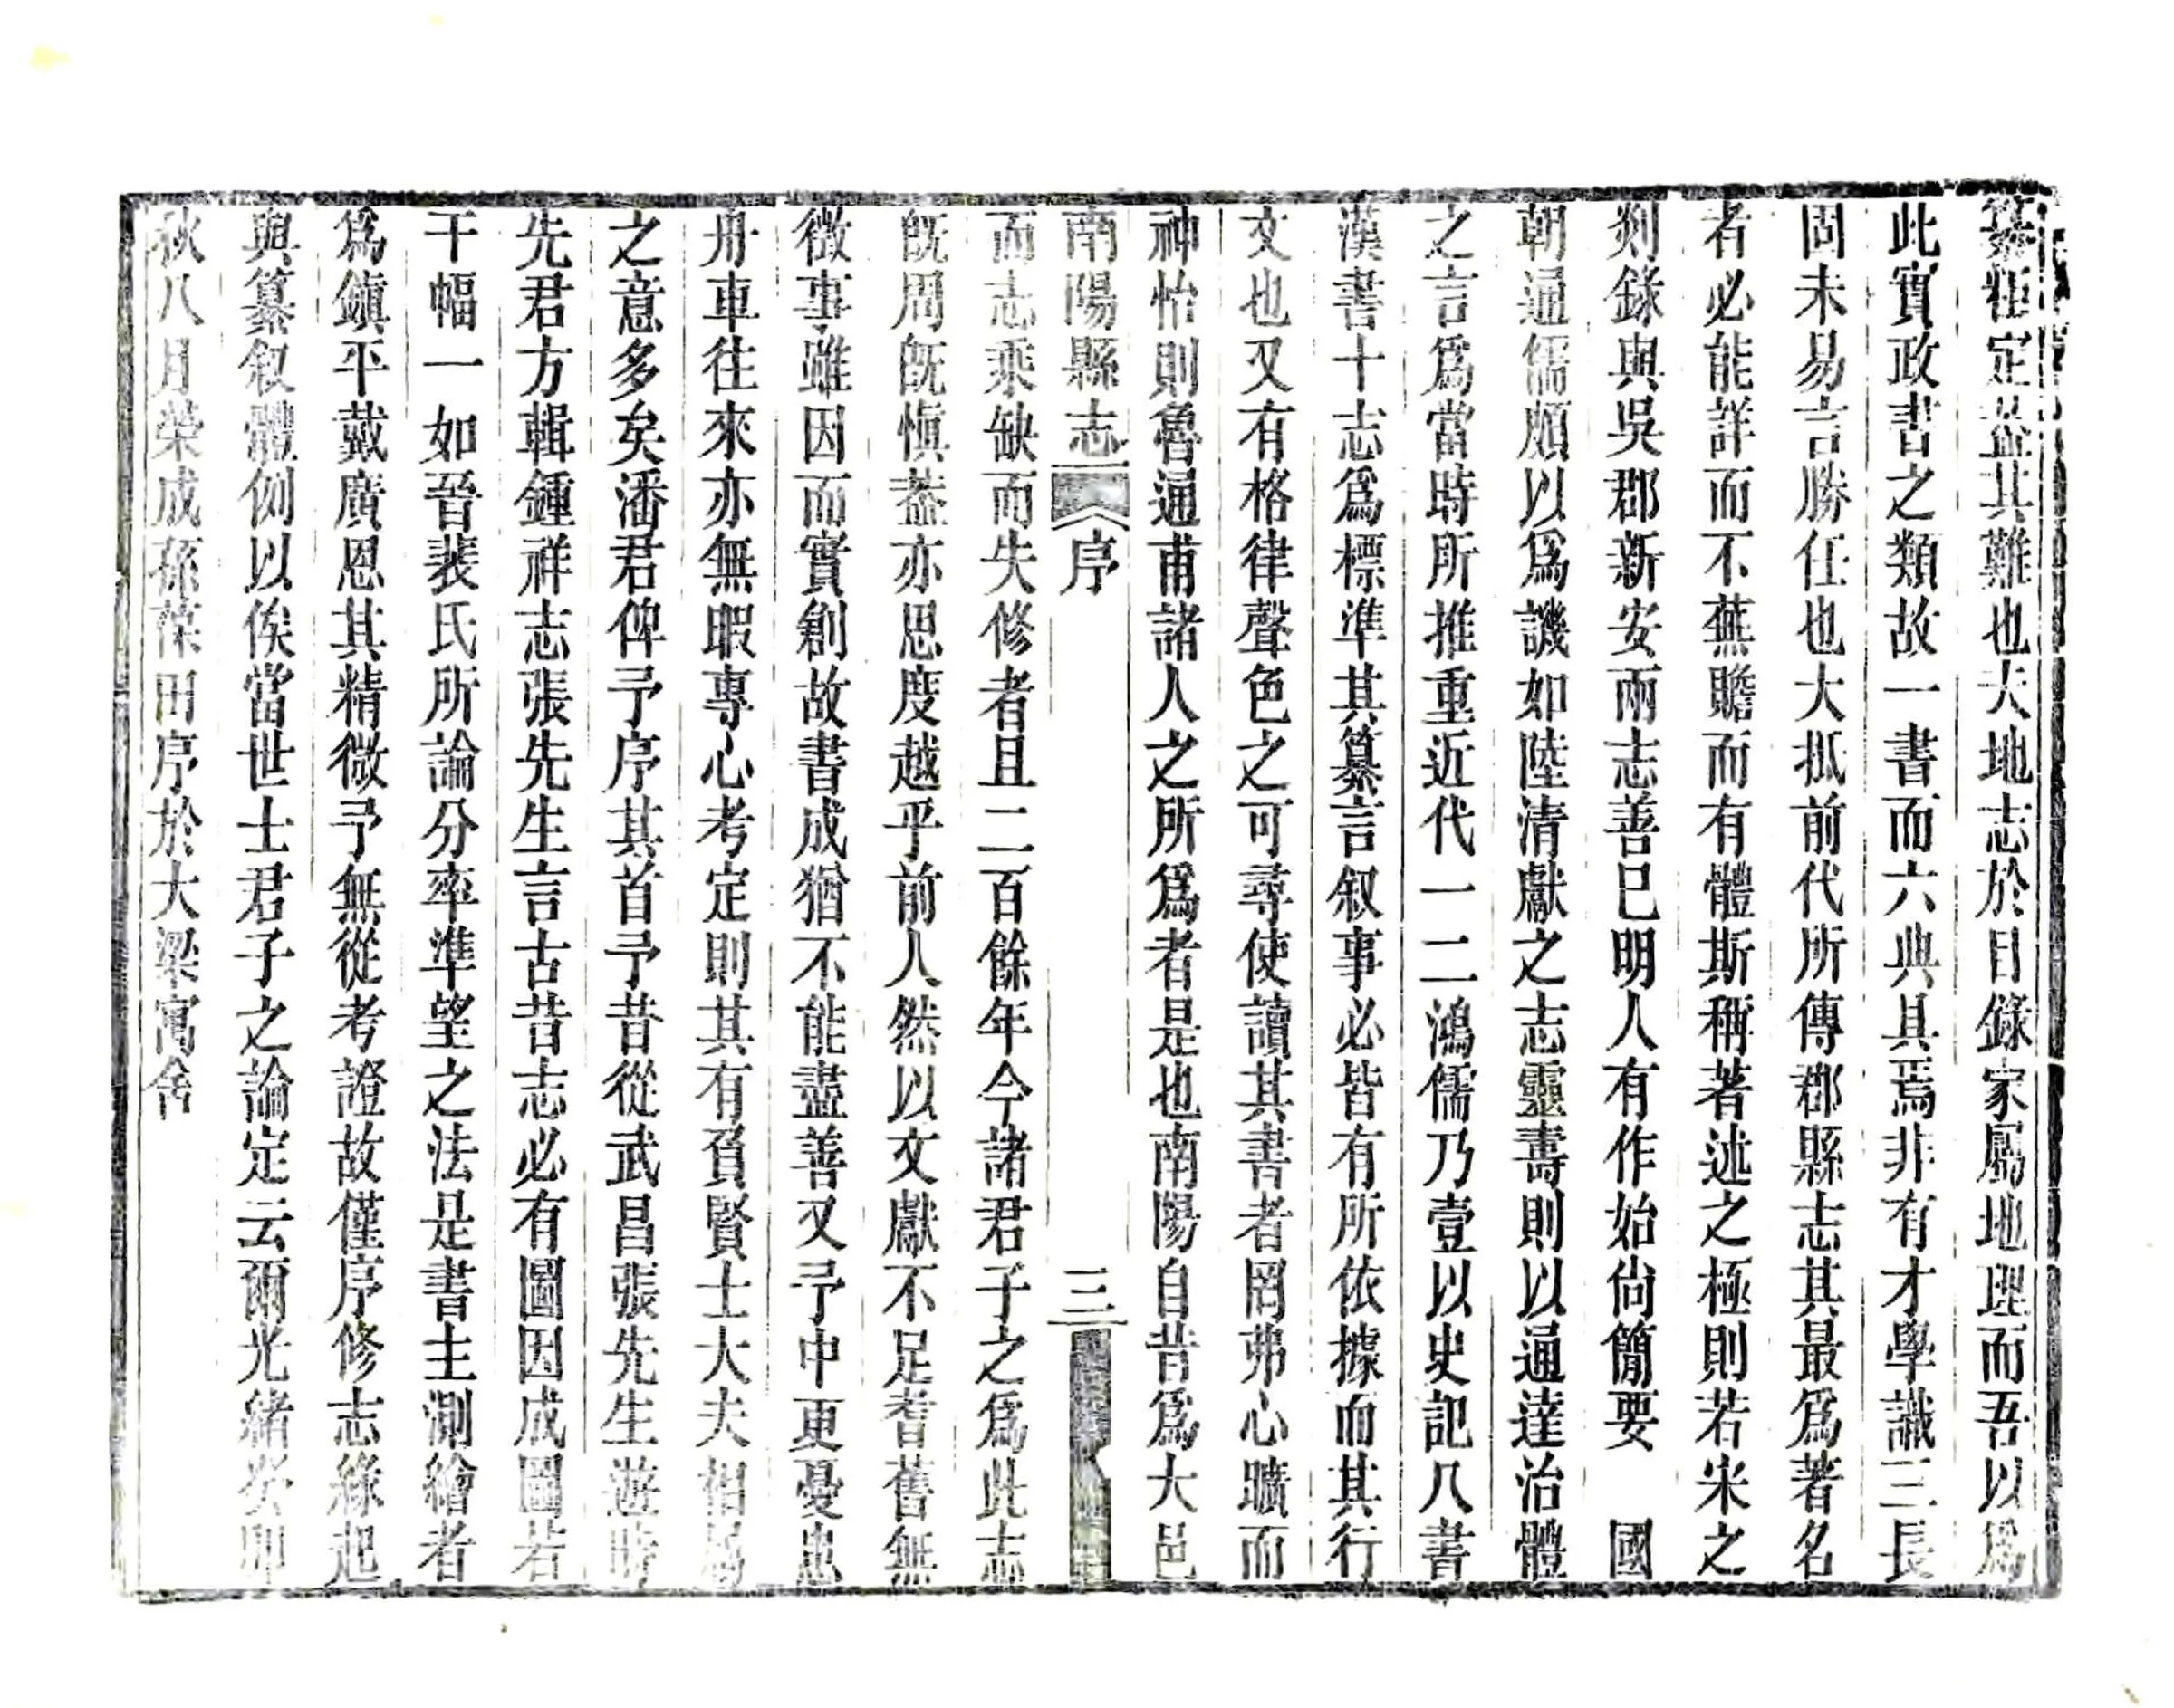 纂粗定葢其難也夫地志於目錄家屬地理而吾以爲
此實政書之類故一書而六典具焉非有才學識三長
固未易言勝任也大抵前代所傳郡縣志其最爲著名
者必能詳而不蕪贍而有體斯稱著述之極則若米之
剡錄與吳郡新安兩志善已明人有作始尙簡要　國
朝通儒頗以爲譏如陸清獻之志靈壽則以通達治體
之言爲當時所推重近代一二鴻儒乃壹以史記八書
漢書十志爲標準其纂言叙事必皆有所依據而其行
文也又有格律聲色之可尋使讀其書者罔弗心曠而
神怡則魯通甫諸人之所爲者是也南陽自昔爲大邑
南陽縣志　序　三
而志乘缺而失修者且二百餘年今諸君子之爲此志
旣周旣愼葢亦思度越乎前人然以文獻不足耆舊無
徵事雖因而實創故書成猶不能盡善又予中更憂患
舟車往來亦無暇專心考定則其有負賢士大夫相屬
之意多矣潘君俾予序其首予昔從武昌張先生遊時
先君方輯鍾祥志張先生言古昔志必有圖因成圖若
干幅一如晉裴氏所論分率準望之法是書主測繪者
爲鎭平戴廣恩其精微予無從考證故僅序修志緣起
與纂叙體例以俟當世士君子之論定云爾光緖癸卯
秋八月榮成孫葆田序於大梁寓舍